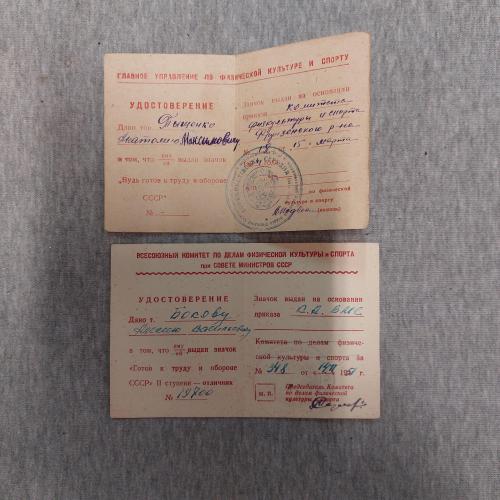 ГЛАВНОЕ УПРАВЛЕНИЕ ПО ФИЗИЧЕСКОЙ КУЛЬТУРЕ И СПОРТУ
УДОСТОВЕРЕНИЕ
Дано тов.
Анатолию Максимовичу
в том, что ему выдан значок
ей
„Будь готов к труду и обороне
СССР"
№ -
Значок выдан на основании
приказа комитета
физкультуры и спорта
р-на
№ 18
15 марта
по физической
культуре и спорту
ВСЕСОЮЗНЫЙ КОМИТЕТ ПО ДЕЛАМ ФИЗИЧЕСКОЙ КУЛЬТУРЫ и СПОРТА
при СОВЕТЕ МИНИСТРОВ СССР
УДОСТОВЕРЕНИЕ
Дано т. Бокову
в том, что ему выдан значок
ей
«Готов к труду и обороне
СССР» II ступени—отличник
№ 19700
Значок выдан на основании
приказа
Комитета по делам физиче-
ской культуры и спорта за
№ 348 от г.
М. П.
Председатель Комитета
по делам физической
культуры и спорта